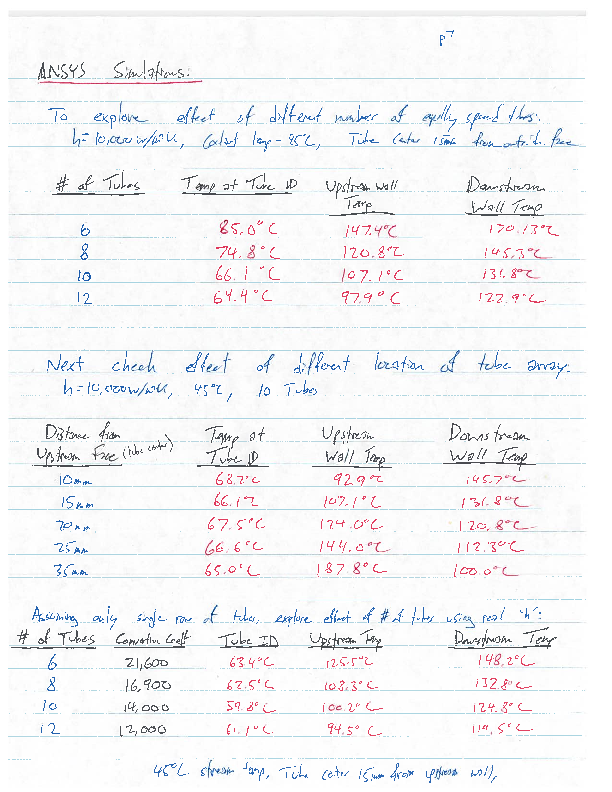 p7
ANSYS Simulations:
To explore effect of different number of equally spaced tubes:
h=10,000 w/m²K, Coolant temp - 45°C, Tube Center 15mm from face
# of Tubes Temp at Tube ID Upstream Wall Temp Downstream Wall Temp
6 85.0°C 147.4°C 170.13°C
8 74.8°C 120.8°C 145.3°C
10 66.1°C 107.1°C 131.8°C
12 64.4°C 97.9°C 122.9°C
Next check effect of different location of tube array:
h=10,000 w/m²K, 45°C, 10 Tubes
Distance from Temp at Upstream Downstream
Upstream Face (tube center) Tube ID Wall Temp Wall Temp
10mm 68.7°C 92.9°C 145.7°C
15mm 66.1°C 107.1°C 131.8°C
20mm 67.5°C 124.0°C 120.8°C
25mm 66.6°C 144.0°C 112.3°C
35mm 65.0°C 187.8°C 100.0°C
Assuming only single row of tubes, explore effect of # of tubes using real "h":
# of Tubes Convective Coeff Tube ID Upstream Temp Downstream Temp
6 21,600 63.4°C 125.5°C 148.2°C
8 16,900 62.5°C 108.3°C 132.8°C
10 14,000 59.8°C 100.2°C 124.8°C
12 12,000 61.1°C 94.5°C 119.5°C
45°C stream temp, Tube Center 15mm from upstream wall,